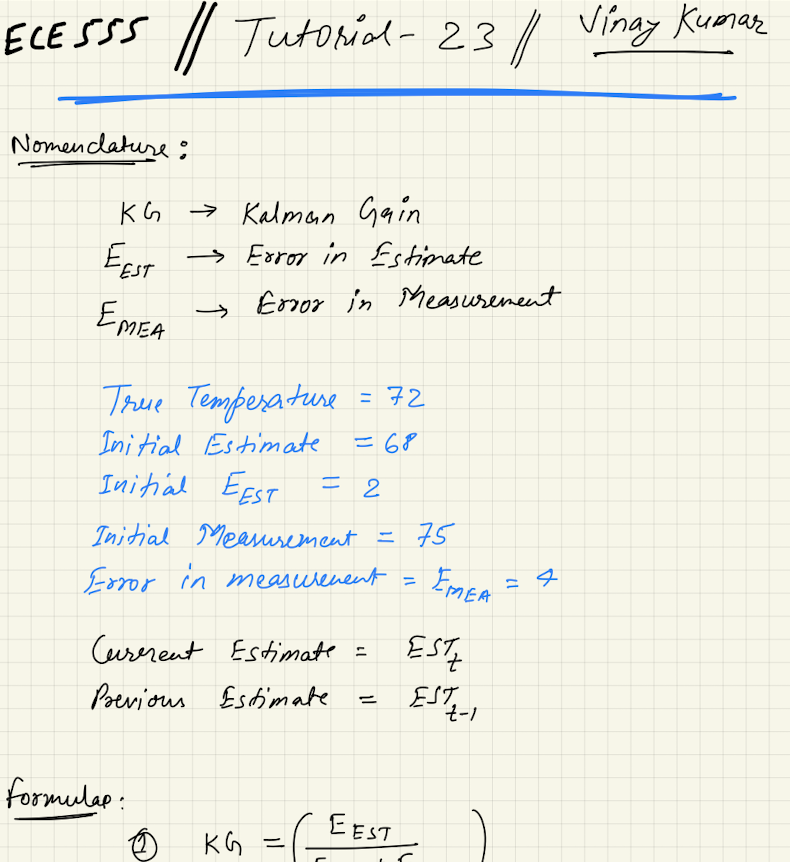 ECE 555 // Tutorial - 23 // Vinay Kumar
Nomenclature :
KG → Kalman Gain
E_EST → Error in Estimate
E_MEA → Error in Measurement
True Temperature = 72
Initial Estimate = 68
Initial E_EST = 2
Initial Measurement = 75
Error in measurement = E_MEA = 4
Current Estimate = EST_t
Previous Estimate = EST_t-1
Formulae :
① KG = ( E_EST